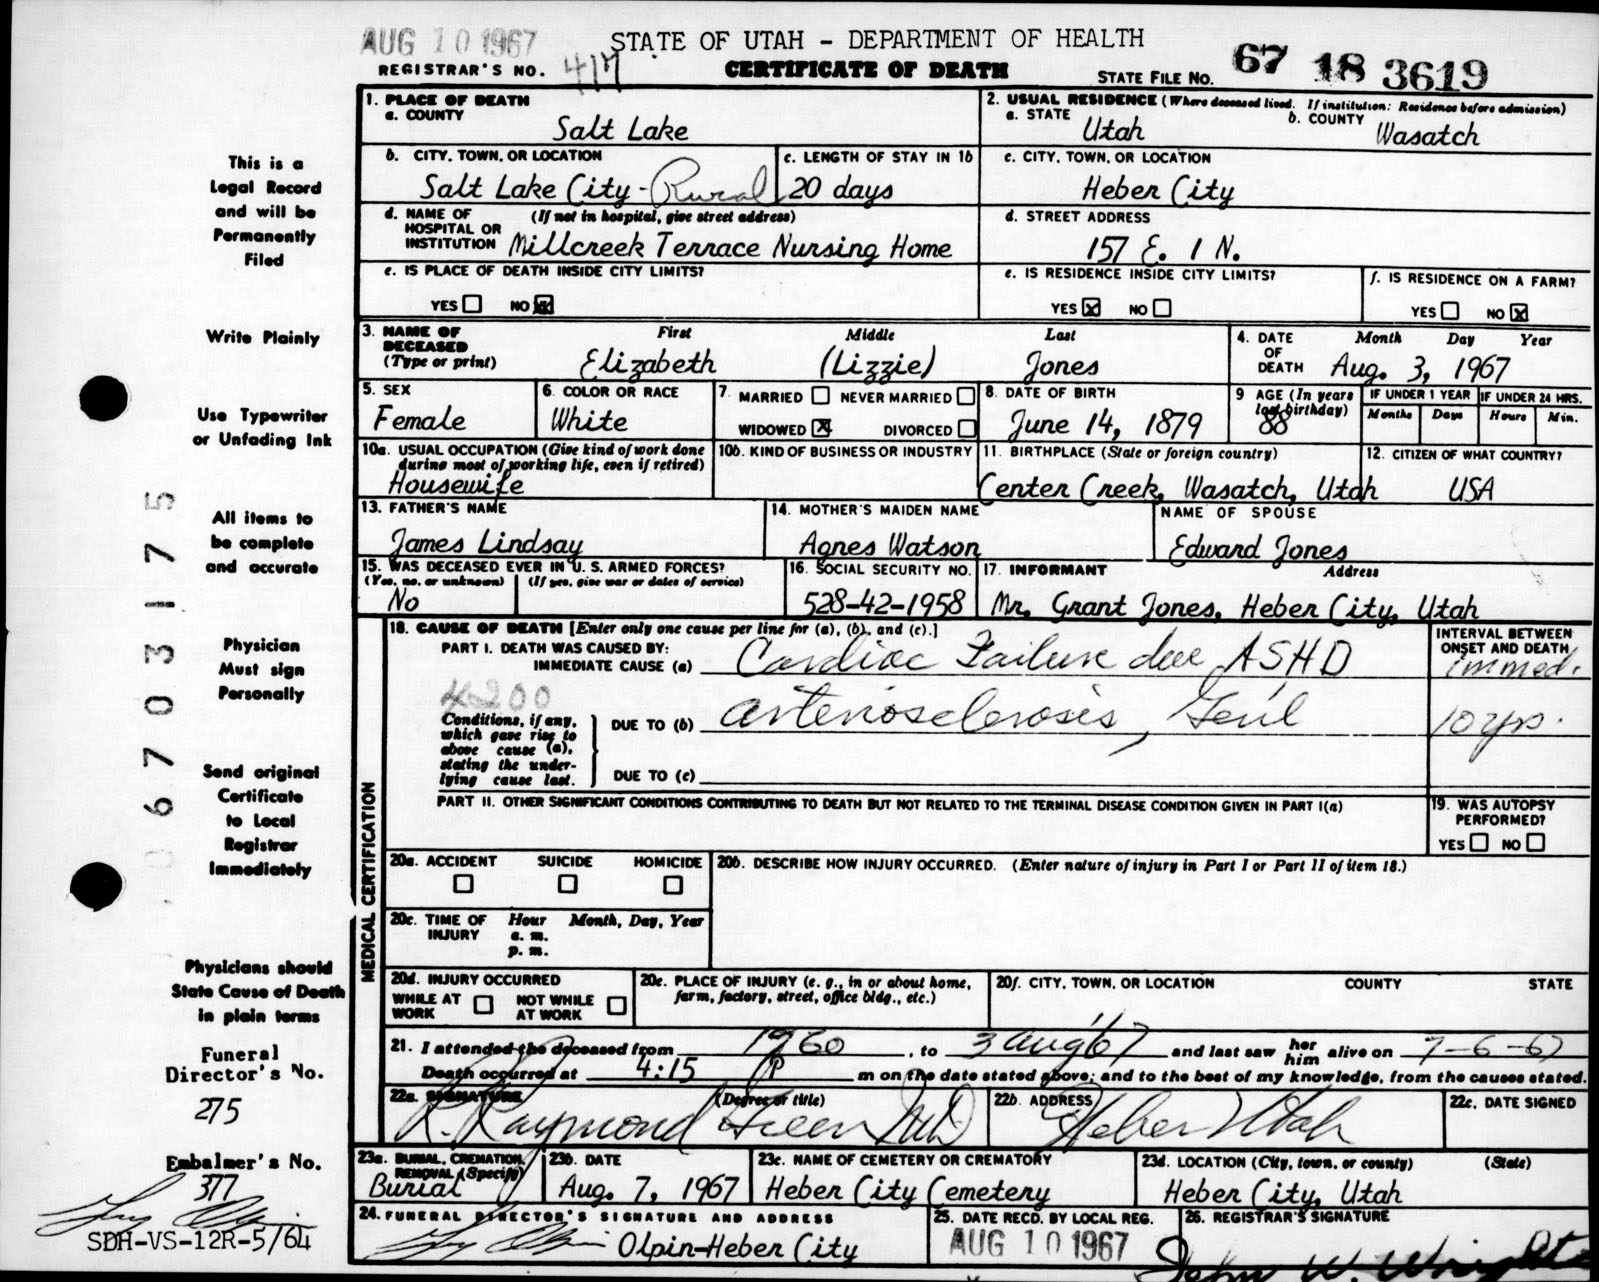 AUG 10 1967
STATE OF UTAH - DEPARTMENT OF HEALTH
REGISTRAR'S NO. 417
CERTIFICATE OF DEATH
STATE FILE NO. 67 18 3619
This is a
Legal Record
and will be
Permanently
Filed
Write Plainly
Use Typewriter
or Unfading Ink
All items to
be complete
and accurate
Physician
Must sign
Personally
Send original
Certificate
to Local
Registrar
Immediately
Physicians should
State Cause of Death
in plain terms
Funeral
Director's No.
275
Embalmer's No.
377
SDH-VS-12R-5/64
06703175
1. PLACE OF DEATH
a. COUNTY
Salt Lake
2. USUAL RESIDENCE (Where deceased lived. If institution: Residence before admission)
a. STATE
Utah
b. COUNTY
Wasatch
b. CITY, TOWN, OR LOCATION
Salt Lake City - Rural
c. LENGTH OF STAY IN 1b
20 days
c. CITY, TOWN, OR LOCATION
Heber City
d. NAME OF HOSPITAL OR INSTITUTION (If not in hospital, give street address)
Millcreek Terrace Nursing Home
d. STREET ADDRESS
157 E. 1 N.
e. IS PLACE OF DEATH INSIDE CITY LIMITS?
YES NO X
e. IS RESIDENCE INSIDE CITY LIMITS?
YES X NO
f. IS RESIDENCE ON A FARM?
YES NO X
3. NAME OF DECEASED (Type or print)
First Middle Last
Elizabeth (Lizzie) Jones
4. DATE OF DEATH
Month Day Year
Aug. 3, 1967
5. SEX
Female
6. COLOR OR RACE
White
7. MARRIED NEVER MARRIED
WIDOWED X DIVORCED
8. DATE OF BIRTH
June 14, 1879
9 AGE (In years last birthday)
88
IF UNDER 1 YEAR
Months Days
IF UNDER 24 HRS.
Hours Min.
10a. USUAL OCCUPATION (Give kind of work done during most of working life, even if retired)
Housewife
10b. KIND OF BUSINESS OR INDUSTRY
11. BIRTHPLACE (State or foreign country)
Center Creek, Wasatch, Utah
12. CITIZEN OF WHAT COUNTRY?
USA
13. FATHER'S NAME
James Lindsay
14. MOTHER'S MAIDEN NAME
Agnes Watson
NAME OF SPOUSE
Edward Jones
15. WAS DECEASED EVER IN U. S. ARMED FORCES?
(Yes, no, or unknown) (If yes, give war or dates of service)
No
16. SOCIAL SECURITY NO.
528-42-1958
17. INFORMANT Address
Mr. Grant Jones, Heber City, Utah
MEDICAL CERTIFICATION
18. CAUSE OF DEATH [Enter only one cause per line for (a), (b), and (c).]
PART I. DEATH WAS CAUSED BY:
IMMEDIATE CAUSE (a) Cardiac Failure due ASHD
INTERVAL BETWEEN ONSET AND DEATH
immed.
4200
Conditions, if any, which gave rise to above cause (a), stating the underlying cause last.
DUE TO (b) Arteriosclerosis, Genl
10 yrs.
DUE TO (c)
PART II. OTHER SIGNIFICANT CONDITIONS CONTRIBUTING TO DEATH BUT NOT RELATED TO THE TERMINAL DISEASE CONDITION GIVEN IN PART I(a)
19. WAS AUTOPSY PERFORMED?
YES NO
20a. ACCIDENT SUICIDE HOMICIDE
20b. DESCRIBE HOW INJURY OCCURRED. (Enter nature of injury in Part I or Part II of item 18.)
20c. TIME OF INJURY Hour Month, Day, Year
a. m.
p. m.
20d. INJURY OCCURRED
WHILE AT WORK NOT WHILE AT WORK
20e. PLACE OF INJURY (e. g., in or about home, farm, factory, street, office bldg., etc.)
20f. CITY, TOWN, OR LOCATION COUNTY STATE
21. I attended the deceased from 1960, to 3 Aug '67 and last saw her him alive on 7-6-67
Death occurred at 4:15 P m on the date stated above; and to the best of my knowledge, from the causes stated.
22a. SIGNATURE (Degree or title)
R. Raymond Green MD
22b. ADDRESS
Heber Utah
22c. DATE SIGNED
23a. BURIAL, CREMATION, REMOVAL (Specify)
Burial
23b. DATE
Aug. 7, 1967
23c. NAME OF CEMETERY OR CREMATORY
Heber City Cemetery
23d. LOCATION (City, town, or county) (State)
Heber City, Utah
24. FUNERAL DIRECTOR'S SIGNATURE AND ADDRESS
Olpin-Heber City
25. DATE RECD. BY LOCAL REG.
AUG 10 1967
26. REGISTRAR'S SIGNATURE
John W. Wright